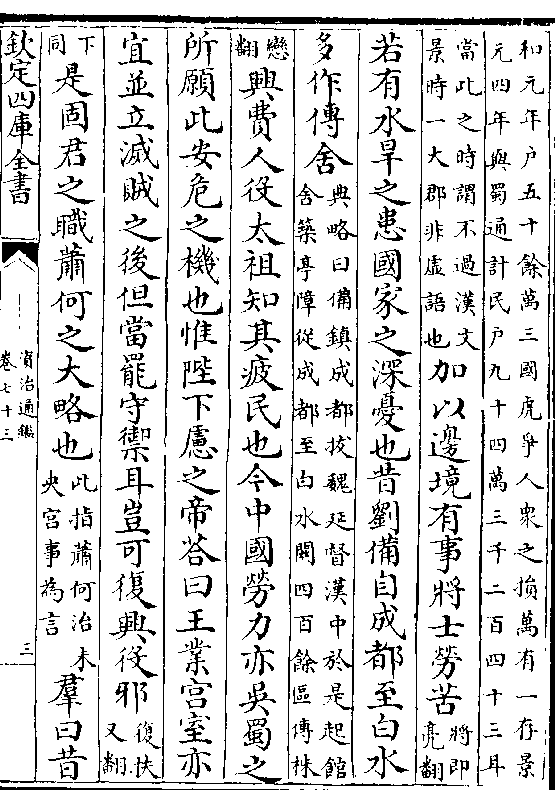 和元年户五十餘萬三國虎爭人衆之損萬有一存景
元四年與蜀通計民户九十四萬三千二百四十三耳
當此之時謂不過漢文
景時一大郡非虚語也
加以邊境有事將士勞苦
將即
亮翻
若有水旱之患國家之深憂也昔劉備自成都至白水
多作傳舍
典略曰備鎮成都拔魏延督漢中於是起館
舍築亭障從成都至白水關四百餘區傳株
戀
翻
興費人役太祖知其疲民也今中國勞力亦吳蜀之
所願此安危之機也惟陛下慮之帝答曰王業宫室亦
宜並立滅賊之後但當罷守禦耳豈可復興役邪
復扶
又翻
下
同
是固君之職蕭何之大略也
此指蕭何治未
央宫事為言
羣曰昔
欽定四庫全書
資治通鑑
卷七十三
三